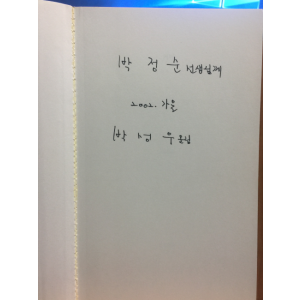 박 정 순 선생님께
2002. 가을
박 우 드림